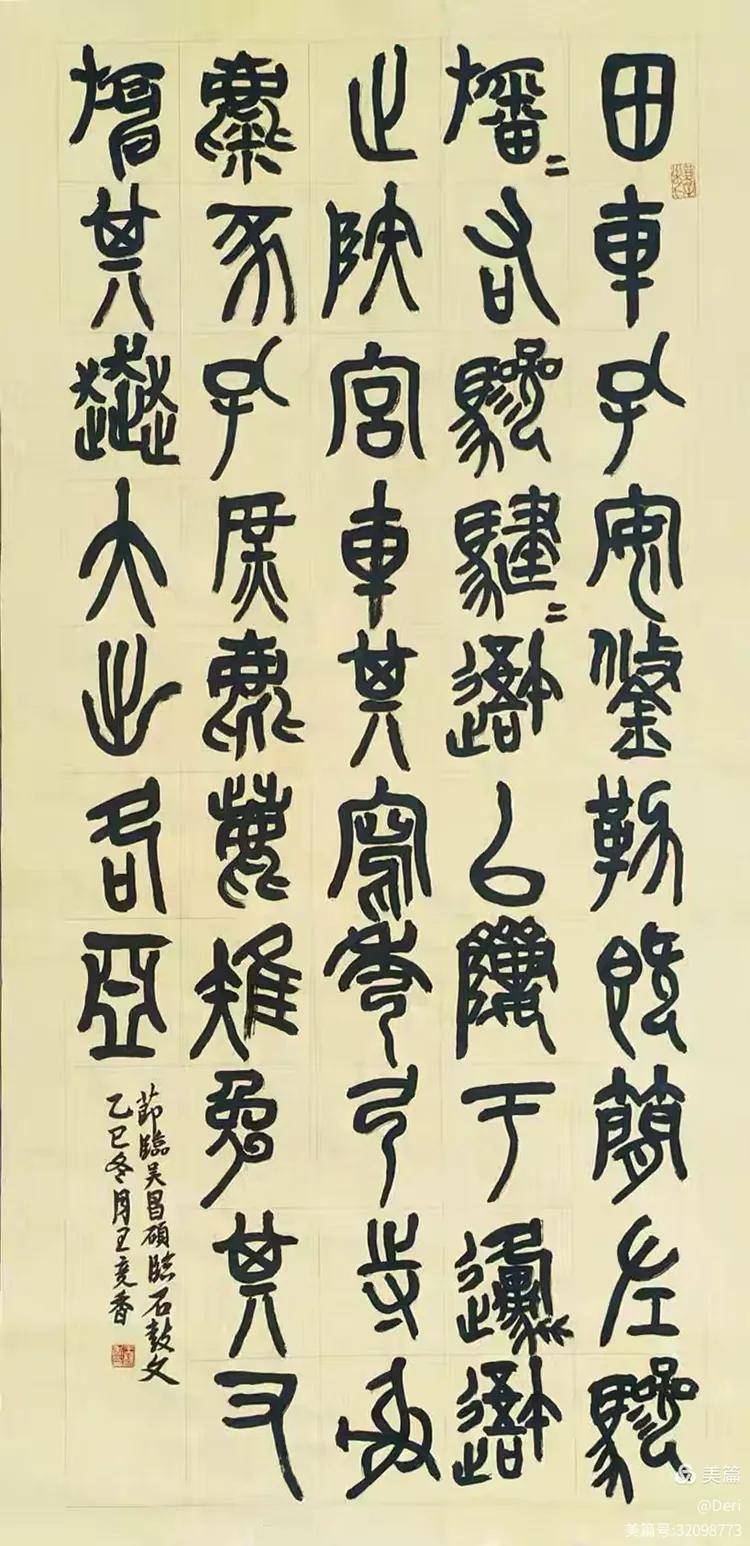 田車孔安鋚勒既簡左驂
旛=右驂騝=以隮于邍
止陜宮車其寫秀弓寺射
麋豕孔庶麀鹿雉兔其又
其奔大出各亞
節臨吳昌碩臨石鼓文
乙巳冬月王竞香
美篇
@Deri
美篇号:32098773